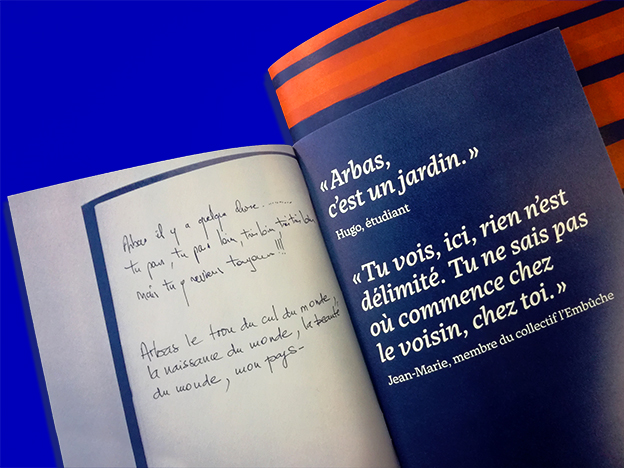 Arbas il y a quelque chose.........
tu pars, tu pars loin, très loin, très très loin,
mais tu y reviens toujours !!!
Arbas le trou du cul du monde,
la naissance du monde, la beauté
du monde, mon pays-
« Arbas,
c'est un jardin. »
Hugo, étudiant
« Tu vois, ici, rien n'est
délimité. Tu ne sais pas
où commence chez
le voisin, chez toi. »
Jean-Marie, membre du collectif l'Embûche